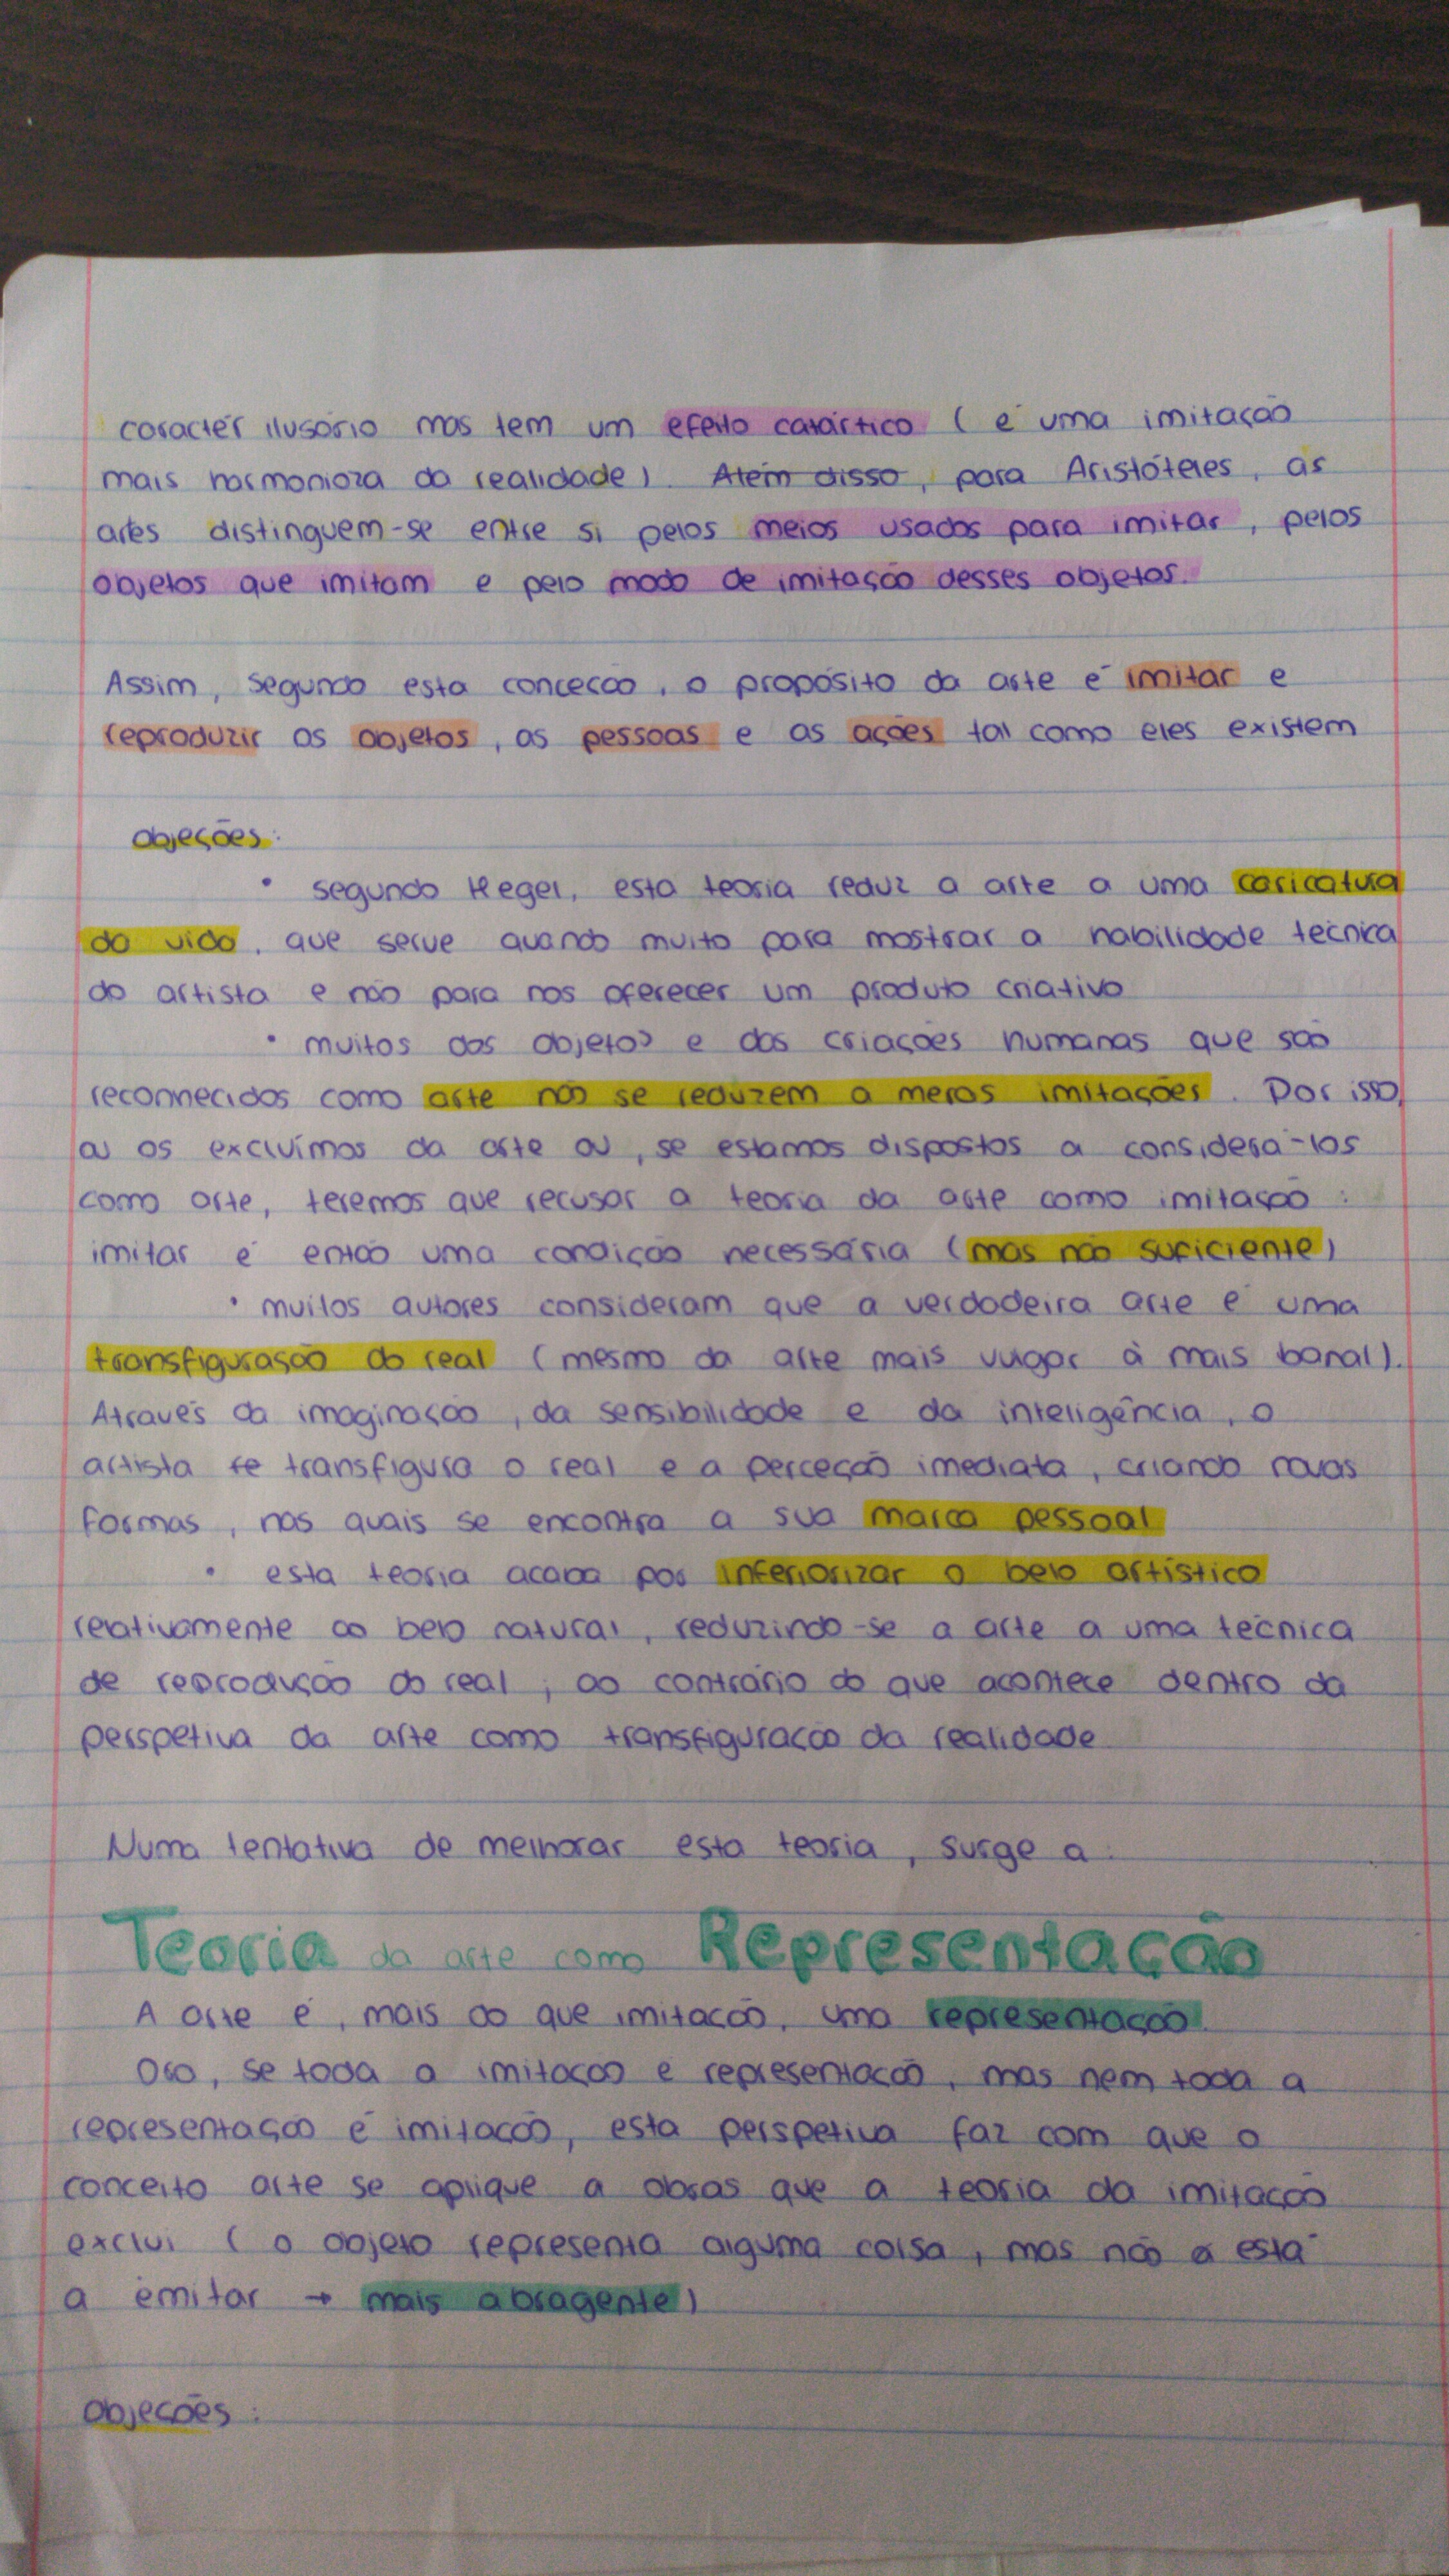 carácter ilusório mas tem um efeito catártico (é uma imitação
mais harmonioza da realidade). Além disso, para Aristóteles, as
artes distinguem-se entre si pelos meios usados para imitar, pelos
objetos que imitam e pelo modo de imitação desses objetos.
Assim, segundo esta conceção, o propósito da arte é imitar e
reproduzir os objetos, as pessoas e as ações tal como eles existem
objeções:
• segundo Hegel, esta teoria reduz a arte a uma caricatura
da vida, que serve quando muito para mostrar a habilidade técnica
do artista e não para nos oferecer um produto criativo
• muitos dos objetos e das criações humanas que são
reconhecidos como arte não se reduzem a meras imitações. Por isso,
ou os excluímos da arte ou, se estamos dispostos a considerá-los
como arte, teremos que recusar a teoria da arte como imitação:
imitar é então uma condição necessária (mas não suficiente)
• muitos autores consideram que a verdadeira arte é uma
transfiguração do real (mesmo da arte mais vulgar à mais banal).
Através da imaginação, da sensibilidade e da inteligência, o
artista te transfigura o real e a perceção imediata, criando novas
formas, nas quais se encontra a sua marca pessoal
• esta teoria acaba por inferiorizar o belo artístico
relativamente ao belo natural, reduzindo-se a arte a uma técnica
de reprodução do real, ao contrário do que acontece dentro da
perspetiva da arte como transfiguração da realidade
Numa tentativa de melhorar esta teoria, surge a:
Teoria da arte como Representação
A arte é, mais do que imitação, uma representação.
Ora, se toda a imitação é representação, mas nem toda a
representação é imitação, esta perspetiva faz com que o
conceito arte se aplique a obras que a teoria da imitação
exclui (o objeto representa alguma coisa, mas não a está
a emitar → mais abragente)
objeções: